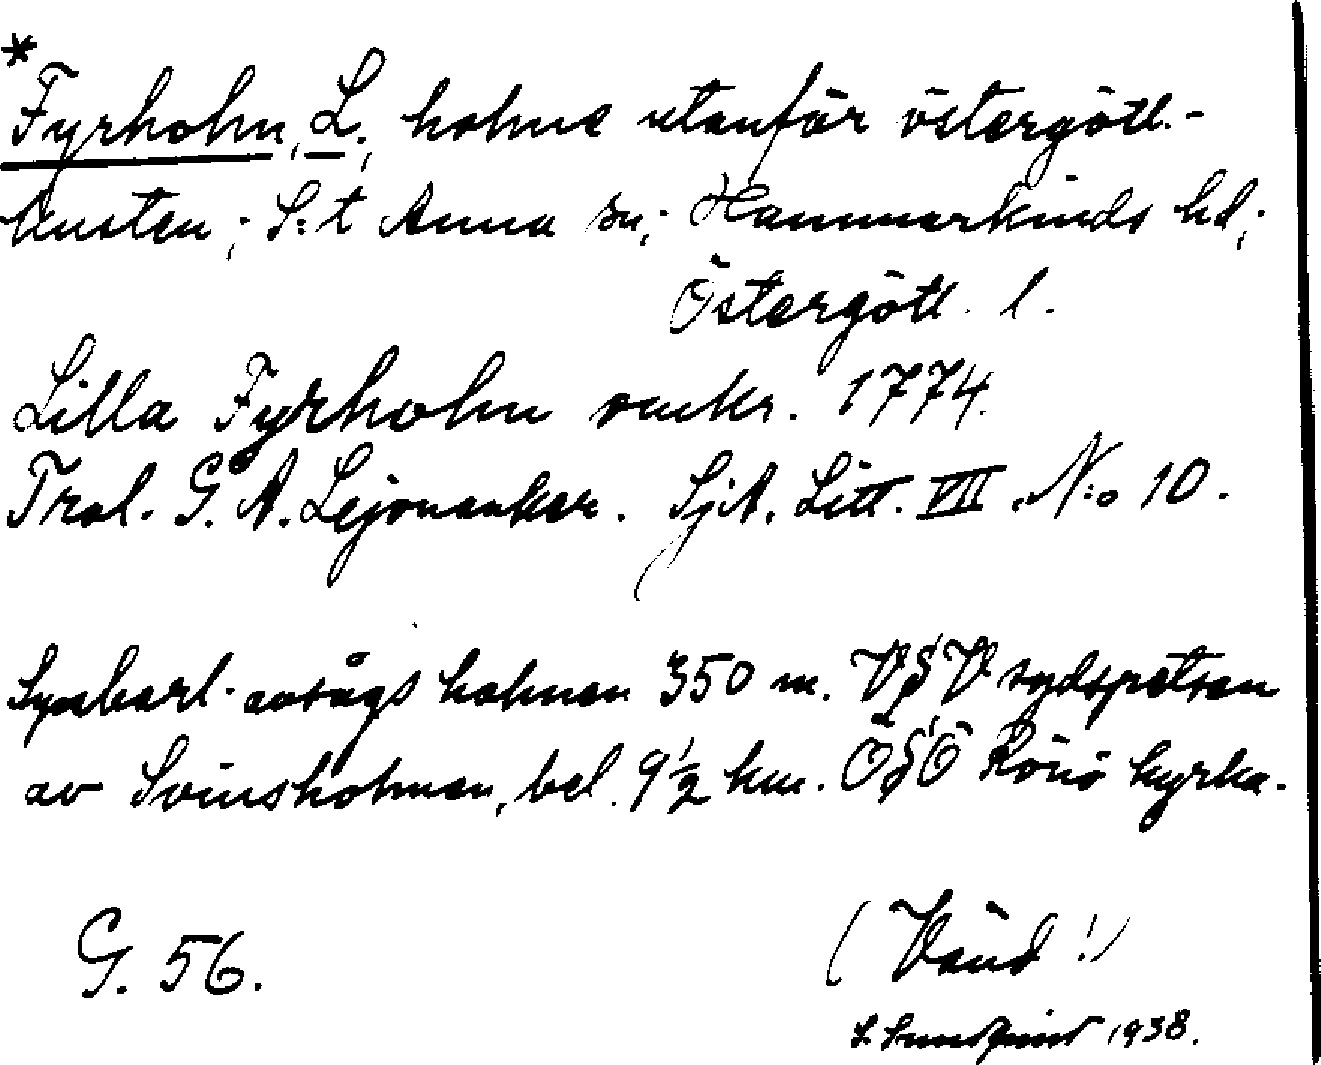 *
Fyrholm, L.; holme utanför östergötl.-
kusten; S:t Anna sn; Hammarkinds hd;
Östergötl. l.
Lilla Fyrholm smkr. 1774.
Trol. G. A. Lejonanker. SjA. Litt. VII. N:o 10.
Synbarl. avsågs holmen 350 m. VSV sydspetsen
av Svinsholmen, bel. 9½ km. OSO Rönö kyrka.
G. 56.
(Vänd!)
S. Sundqvist 1938.